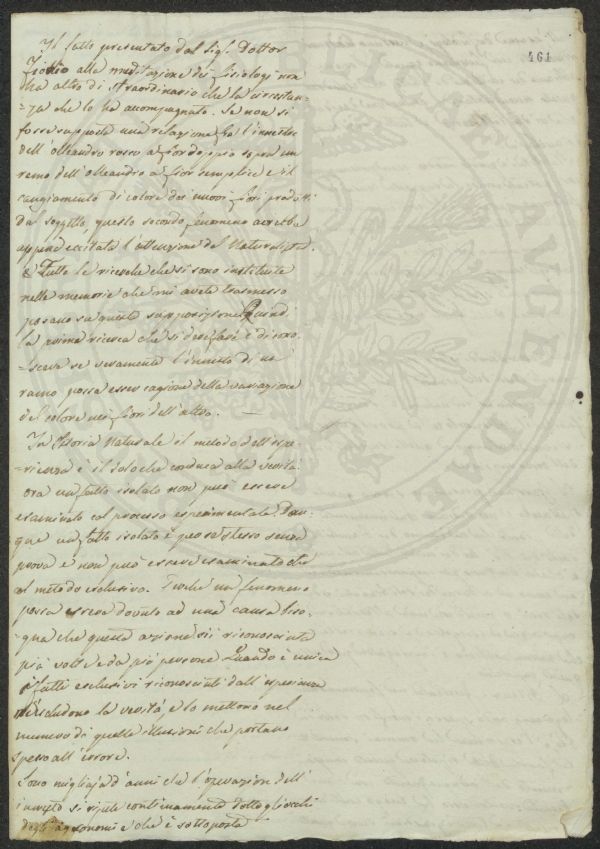 461
Il fatto presentato dal Sig.r Dottor
alla meditazione dei fisiologi non
ha altro di straordinario che la circostan-
-za che lo ha accompagnato. Se non si
fosse supposta una relazione fra l'innesto
dell'olleandro rosso a fior doppio sopra un
ramo dell'olleandro a fior semplice e il
cangiamento di colore dei nuovi fiori prodotti
dal soggetto, questo secondo fenomeno avrebbe
appena eccitato l'attenzione del Naturalista.
Tutte le ricerche che si sono instituite
nelle memorie che mi avete trasmesso
posano su questa supposizione. Quindi
la prima ricerca che si deve fare è di cono-
-scere se veramente l'innesto di un
ramo possa esser cagione della variazione
del colore nei fiori dell'altro. —
In Istoria Naturale il metodo dell'espe-
-rienza è il solo che conduca alla verità.
ora un fatto isolato non può essere
esaminato col processo esperimentale. Dun-
que un fatto isolato è per se stesso senza
prova e non può essere esaminato che
al metodo esclusivo. Perché un fenomeno
possa essere dovuto ad una causa biso-
-gna che questa azione sii riconosciuta
più volte e da più persone. Quando è unica
i fatti esclusivi riconosciuti dall'esperienza
n'escludono la verità, e lo mettono nel
numero di quelle illusioni che portano
spesso all'errore.
Sono migliaja d'anni che l'operazion dell'
innesto si ripete continuamente sotto gli occhi
degli agronomi e che è sottoposta